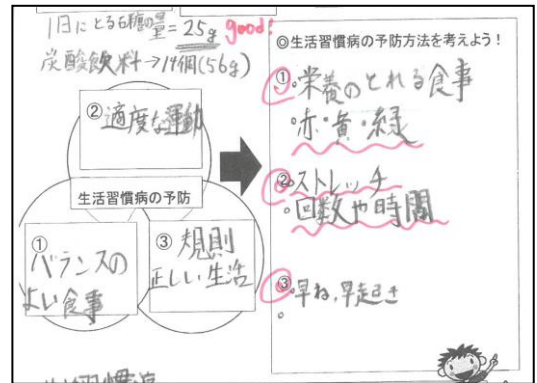 1日にとる砂糖の量=25g good!
炭酸飲料→14個(56g)
②適度な運動
生活習慣病の予防
①
バランスの
よい食事
③規則
正しい生活
◎生活習慣病の予防方法を考えよう!
①・栄養のとれる食事
・赤・黄・緑
②・ストレッチ
・回数や時間
③・早ね、早起き